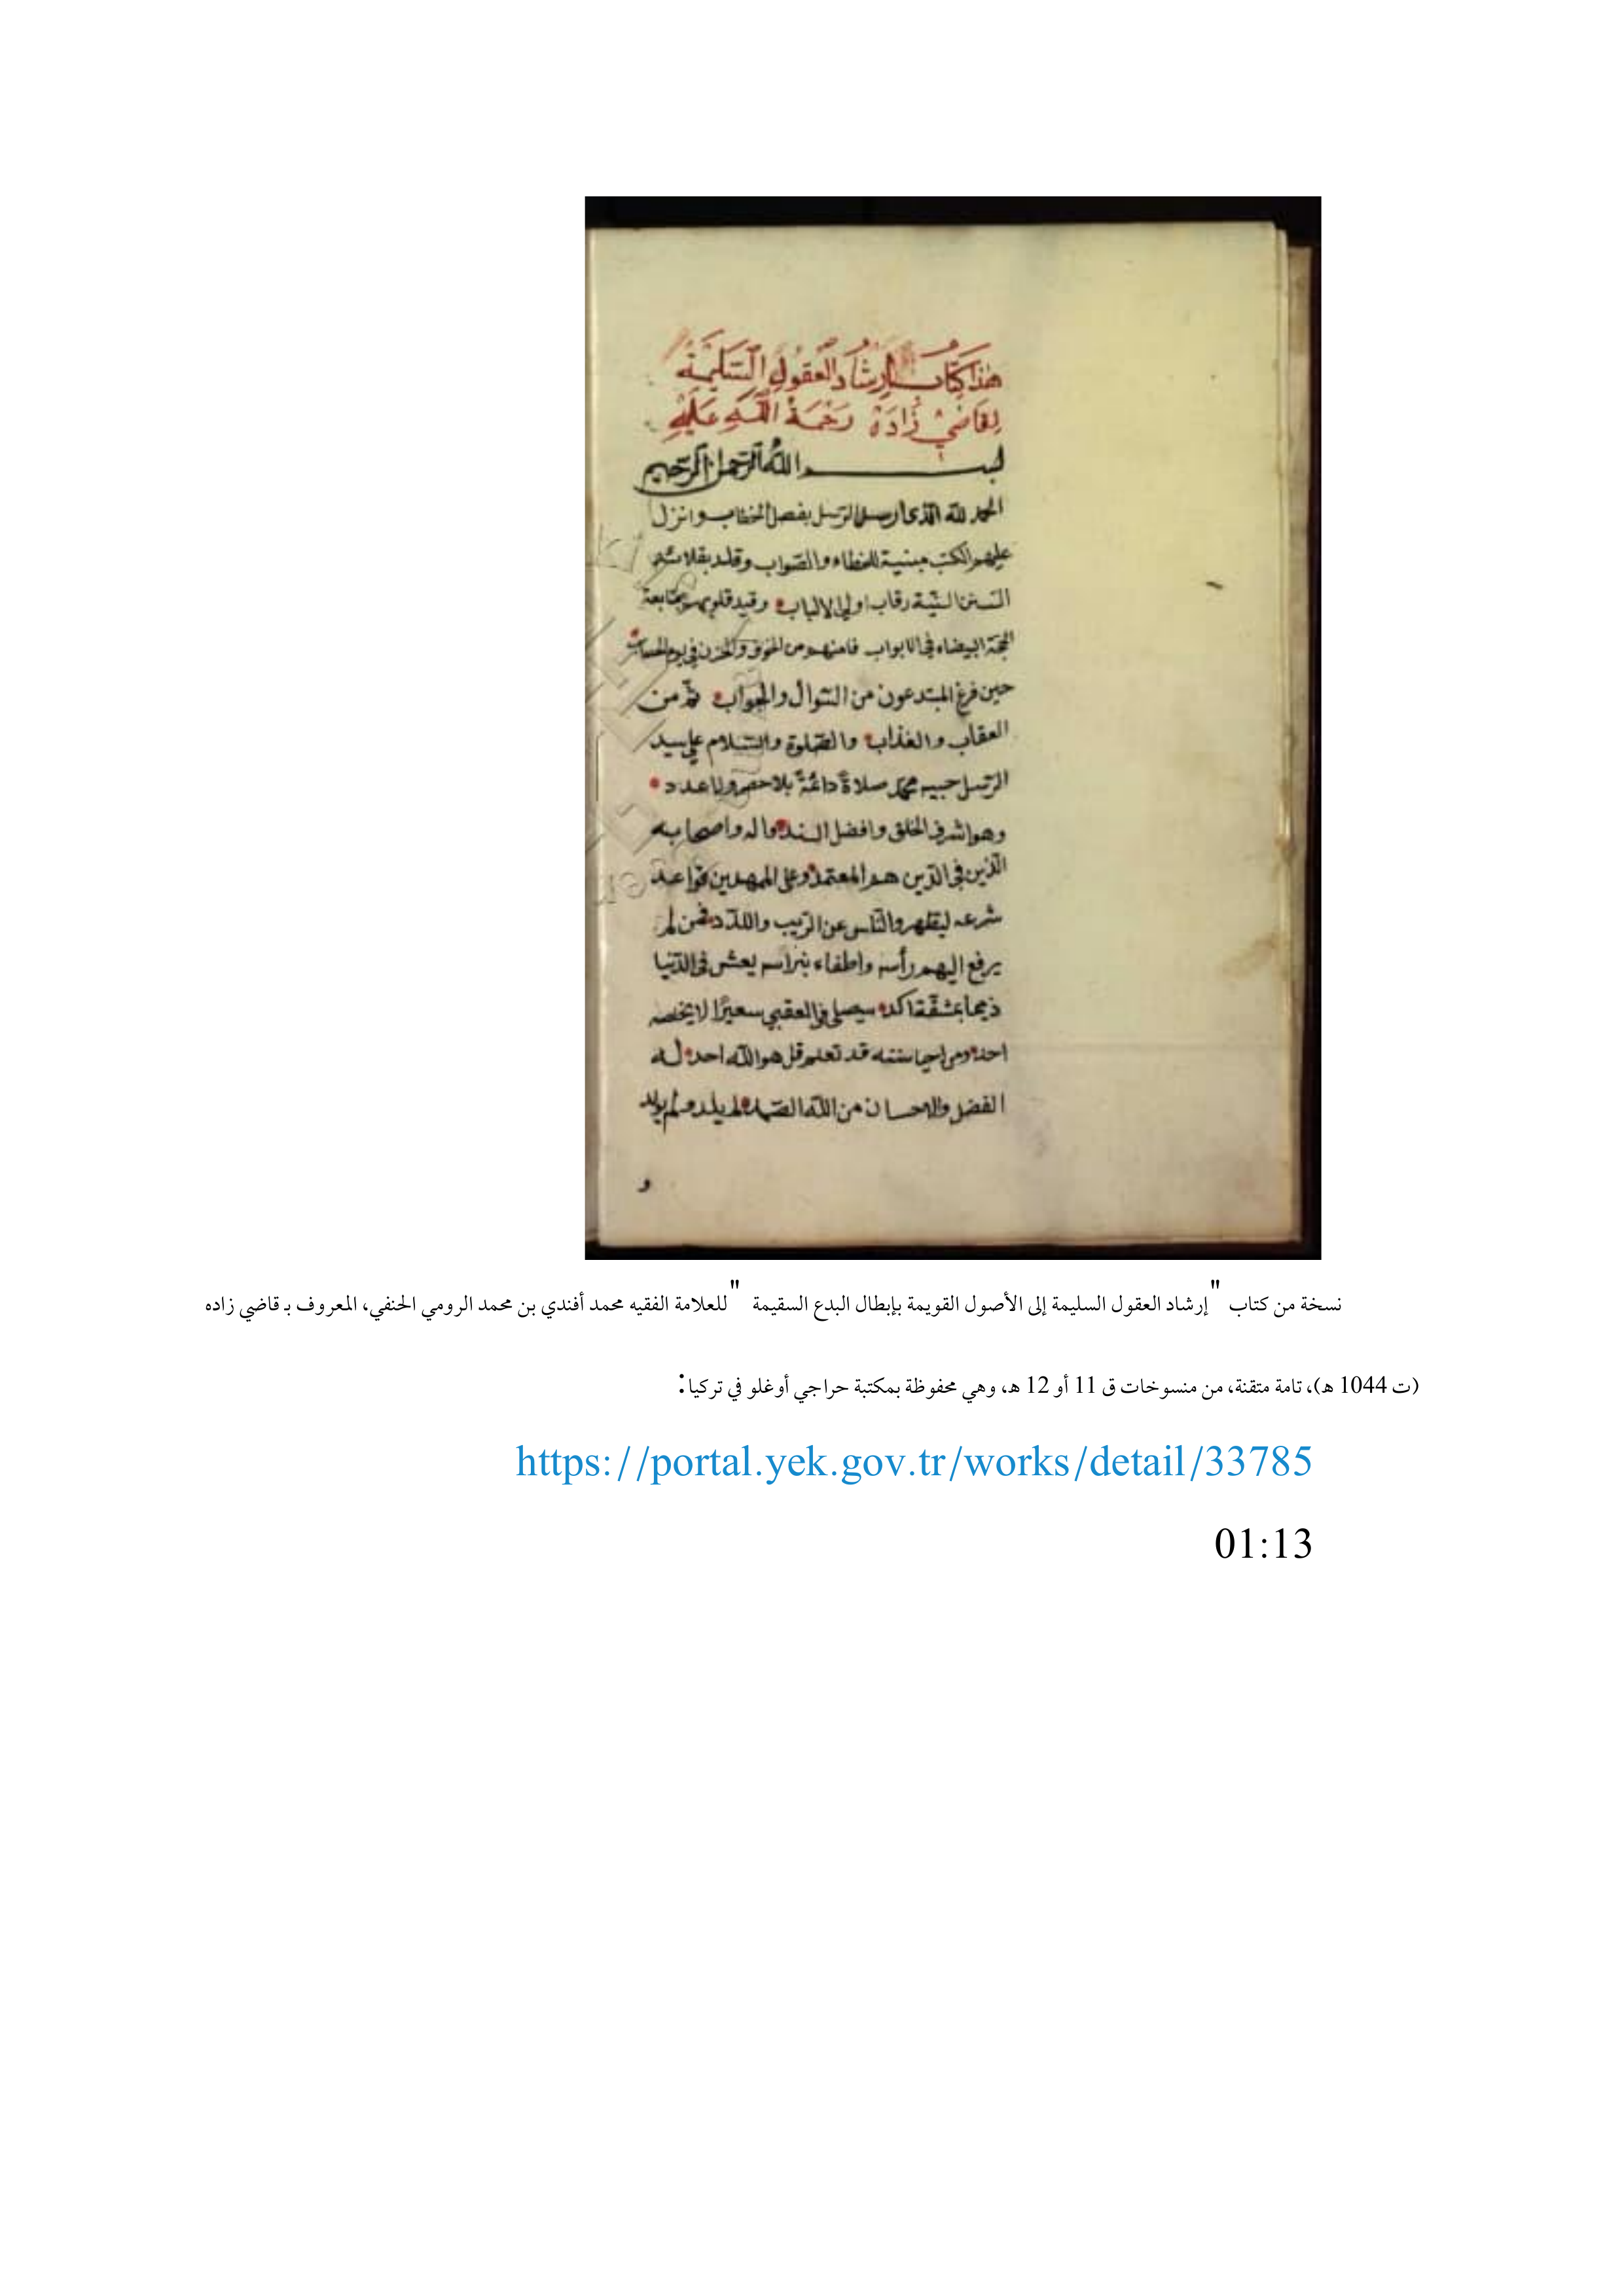 هذا كتاب إرشاد العقول السليمة
لقاضي زاده رحمة الله عليه
بسم الله الرحمن الرحيم
الحمد لله الذى ارسل الرسل بفصل الخطاب وانزل
عليهم الكتب مبنية للخطاء والصواب وقلد بقلائد
السنن السنية رقاب اولي الالباب وقيد قلوبهم بمتابعة
المحجة البيضاء في الابواب فامنهم من الخوف والحزن في يوم الحساب
حين فرغ المبتدعون من السوال والجواب ثم من
العقاب والعذاب والصلوة والسلام علي سيد
الرسل حبيبه محمد صلاة دائمة بلا حصر ولا عدد
وهو اشرف الخلق وافضل السند واله واصحابه
الذين في الدين هم المعتمد وعلى الممهدين قواعد
شرعه ليظهروا الناس عن الريب واللدد فمن لم
يرفع اليهم رأسه واطفاء نبراسه يعش في الدنيا
ذميما بمشقة اكد سيصلى في العقبي سعيرا لا يخلصه
احد ومن احيا سننه قد تعلم قل هو الله احد له
الفضل والاحسان من الله الصمد لم يلد ولم يولد
و
نسخة من كتاب "إرشاد العقول السليمة إلى الأصول القويمة بإبطال البدع السقيمة "للعلامة الفقيه محمد أفندي بن محمد الرومي الحنفي، المعروف بـ قاضي زاده
(ت 1044 هـ)، تامة متقنة، من منسوخات ق 11 أو 12 هـ، وهي محفوظة بمكتبة حراجي أوغلو في تركيا:
https://portal.yek.gov.tr/works/detail/33785
01:13